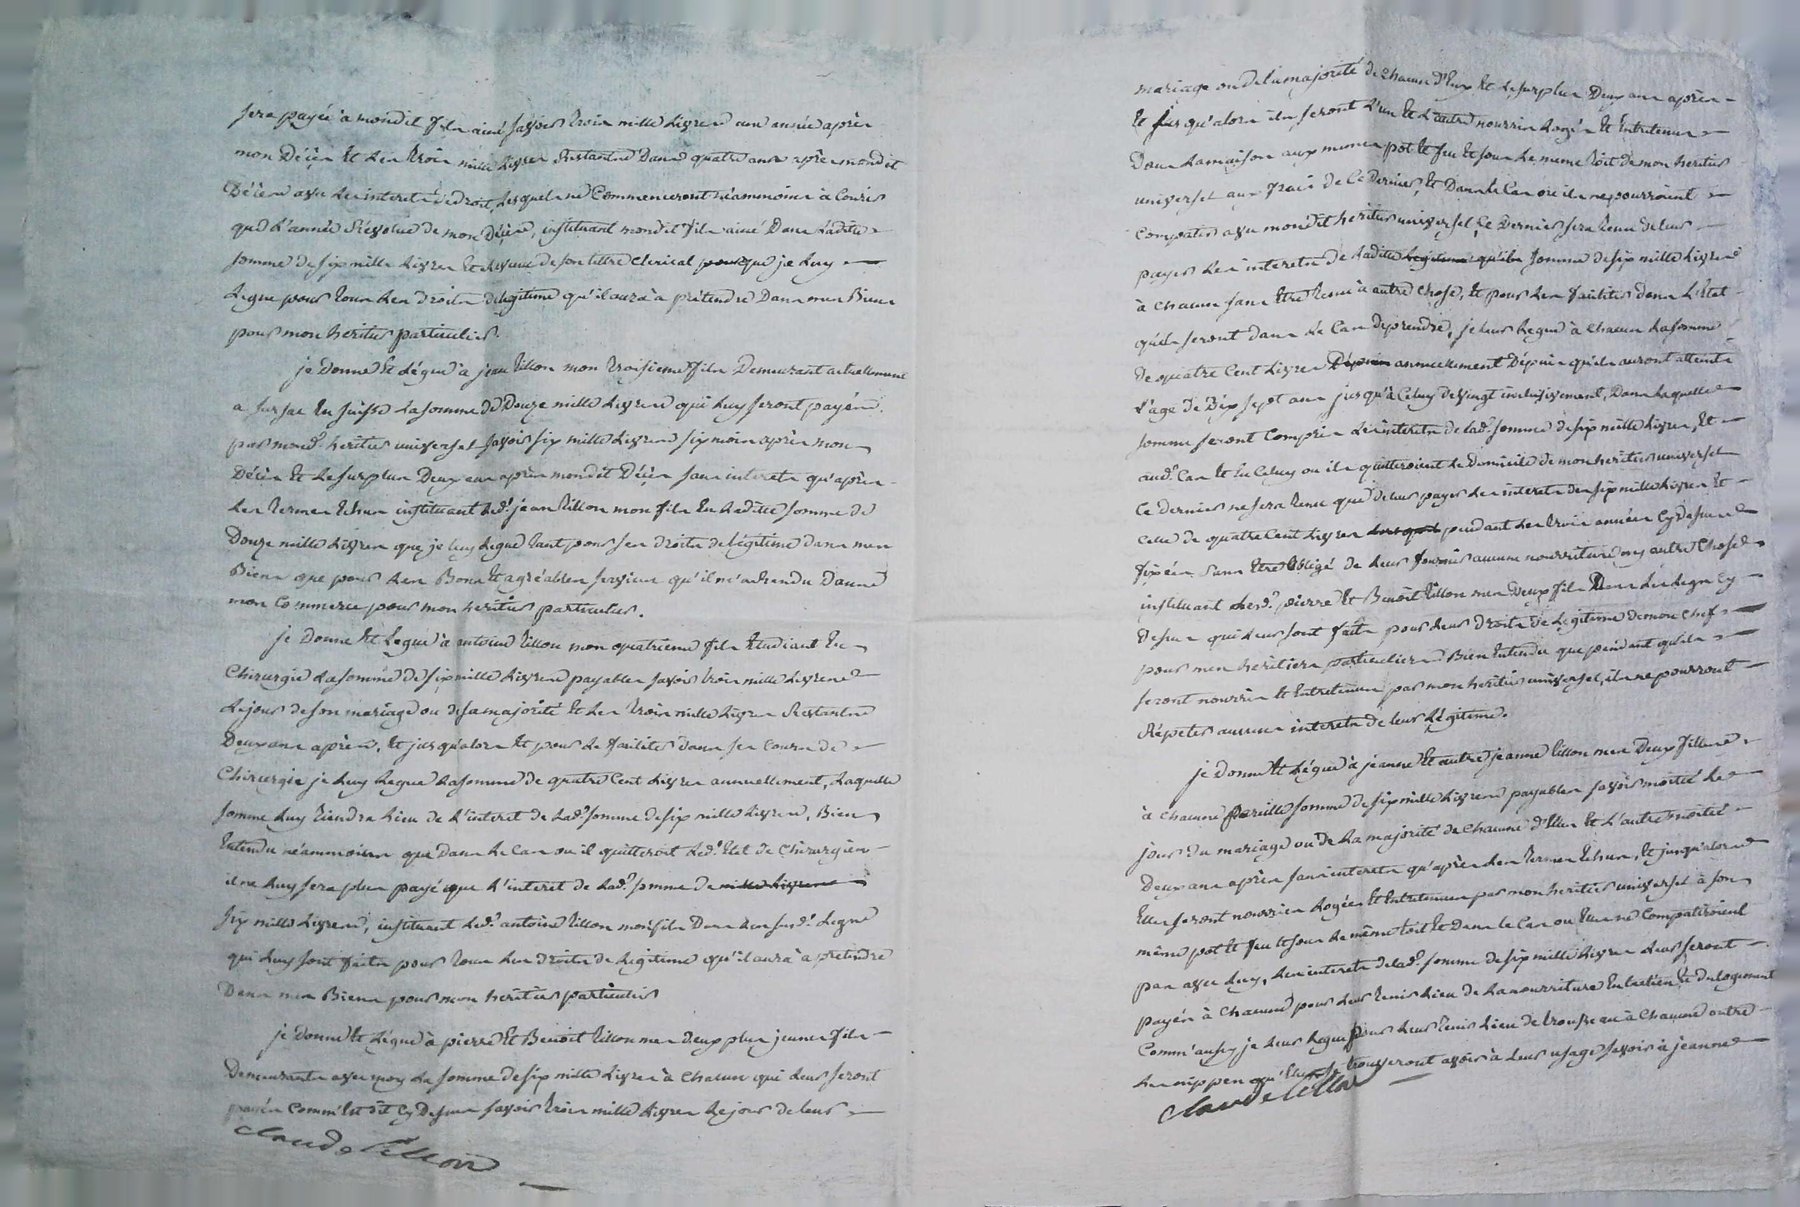 sera payée a mondit fils ainé savoir trois mille livres une année après
mon Décès et les trois mille livres restantes Dans quatre ans après mondit
Décès avec les interets de droit, lesquels ne Commenceront néammoins à Courir
que l'année révolue de mon Décès, instituant mondit fils ainé Dans ladite
somme de six mille livres et de son titre clerical que je luy
legue pour tous les droits de legitime qu'il aura à pretendre Dans mes Biens
pour mon heritier particulier.
je donne et légue à jean tillon mon troisieme fils Demeurant actuellement
a en suisse la somme de Douze mille livres qui luy seront payés
par mond. heritier universel savoir six mille livres six mois après mon
Décès et le surplus Deux ans après mondit Décès sans interets qu'après
les termes Echus instituant led. jean tillon mon fils En ladite somme de
Douze mille livres que je luy legue tant pour ses droits de légitime dans mes
Biens que pour les Bons et agréables services qu'il m'a rendu Dans
mon Commerce pour mon heritier particulier.
je donne et legue à antoine tillon mon quatrieme fils Etudiant En
Chirurgie la somme de six mille livres payables savoir trois mille livres
le jour de son mariage ou de sa majorité et les trois mille livres restantes
Deux ans après, et jusqu'alors et pour le faciliter dans ses Cours de
Chirurgie je luy legue la somme de quatre Cent livres annuellement, laquelle
somme luy tiendra lieu de l'interet de lad. somme de six mille livres, Bien
Entendu néammoins que Dans le Cas ou il quitteroit led. Etat de Chirurgien
il ne luy sera plus payé que l'interet de lad. somme de mille livres
six mille livres, instituant led. antoine tillon mon fils Dans les susd. legs
qui luy sont faits pour tous les droits de legitime qu'il aura à pretendre
Dans mes Biens pour mon heritier particulier
je donne et légue à pierre et Benoit tillon mes deux plus jeunes fils
Demeurants avec moy la somme de six mille livres à Chacun qui leur seront
payés Comm'est dit Cy Dessus savoir trois mille livres le jour de leur
claude tillon
mariage ou de la majorité de chacun d'Eux et le surplus Deux ans après
et jusqu'alors ils seront l'un et l'autre nourris logés et Entretenus
Dans la maison aux memes pot et feu et sous le meme toit de mon heritier
universel aux frais de Ce Dernier, et Dans le Cas ou ils ne pourroient
Compatir avec mondit heritier universel, Ce Dernier sera tenu de leur
payer les interets de ladite legitime qu'ils somme de six mille livres
à chacun sans Etre tenu à autre Chose, et pour les faciliter dans l'Etat
qu'ils seront dans le Cas de prendre, je leur legue à Chacun la somme
de quatre Cent livres Depuis annuellement Depuis qu'ils auront atteint
l'age de Dix sept ans jusqu'à Celuy de vingt inclusivement, Dans laquelle
somme seront Compris les interets de lad. somme de six mille livres, et
aud. Cas et En Celuy ou ils quitteroient le Domicile de mon heritier universel
Ce Dernier ne sera tenu que de leur payer les interets des six mille livres et
Celle de quatre Cent livres pendant les trois années Cy Dessus
fixées sans Etre obligé de leur fournir aucune nourriture ny autre Chose
instituant lesd. pierre et Benoit tillon mes deux fils Dans les legs Cy
dessus qui leur sont faits pour leurs droits de Legitime de mon chef
pour mes heritiers particuliers Bien Entendu que pendant qu'ils
seront nourris et Entretenus par mon heritier universel, ils ne pourront
Répeter aucuns interets de leur Légitime.
je donne et légue à jeanne et autre jeanne tillon mes Deux filles
à chacune pareille somme de six mille livres payables savoir moitié le
jour du mariage ou de la majorité de Chacune d'Elles et l'autre moitié
Deux ans après sans interets qu'après les termes Echus, et jusqu'alors
Elles seront nourries logées et Entretenues par mon heritier universel à son
même pot et feu et sous le même toit et dans le Cas ou Elles ne Compatiroient
pas avec luy, les interets de lad. somme de six mille livres leur seront
payés à Chacune pour leur tenir lieu de la nourriture Entretien et du logement
Comm'aussy je leur legue pour leur tenir lieu de trousseau à Chacune outre
les nippes qu'Elles se trouveront avoir à leur usage savoir à jeanne
claude tillon